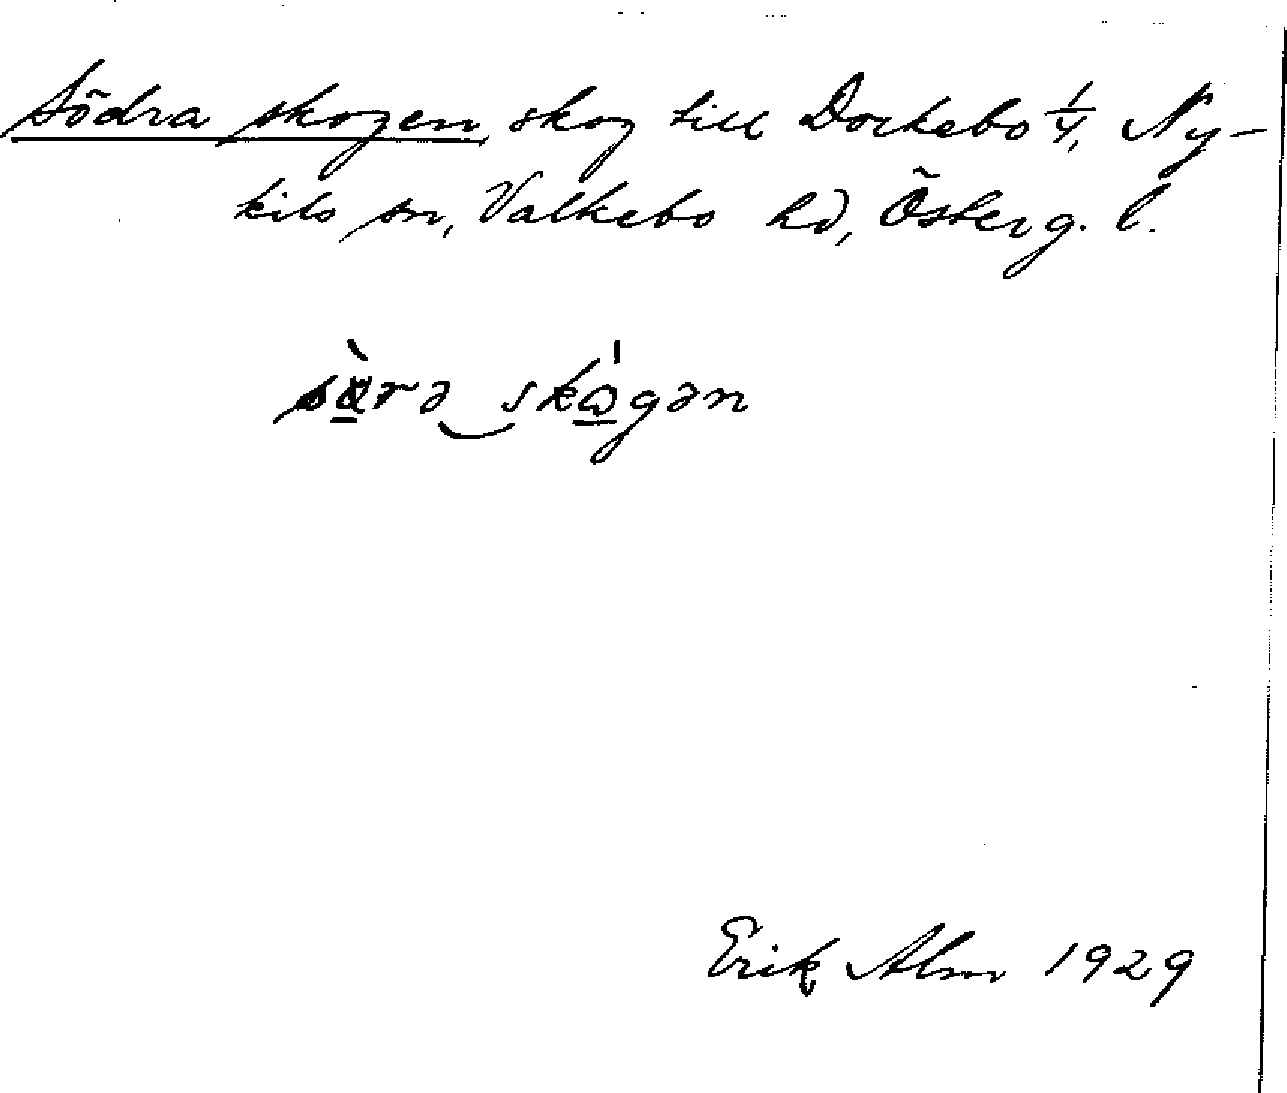 Södra skogen, skog till Dockebo 1/4, Ny-
kils sn, Valkebo hd, Österg. l.
skogən
Erik Alm 1929